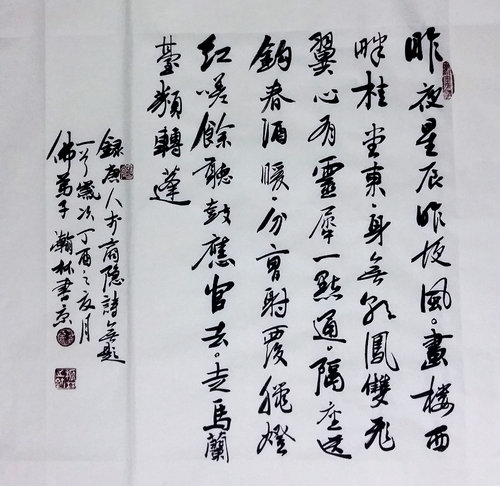 昨夜星辰昨夜風。畫楼西
畔桂堂東。身無彩鳳雙飛
翼心有靈犀一點通。隔座送
鈎春酒暖。分曹射覆蠟燈
紅嗟餘聽鼓應官去。走馬蘭
臺類轉蓬
錄唐人李商隐詩無題
一首歲次丁酉之夏月
佛弟子瀚林書京